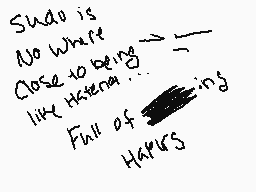 Sudo is
No where
Close to being
like Hatena...
Full of ing
Haters